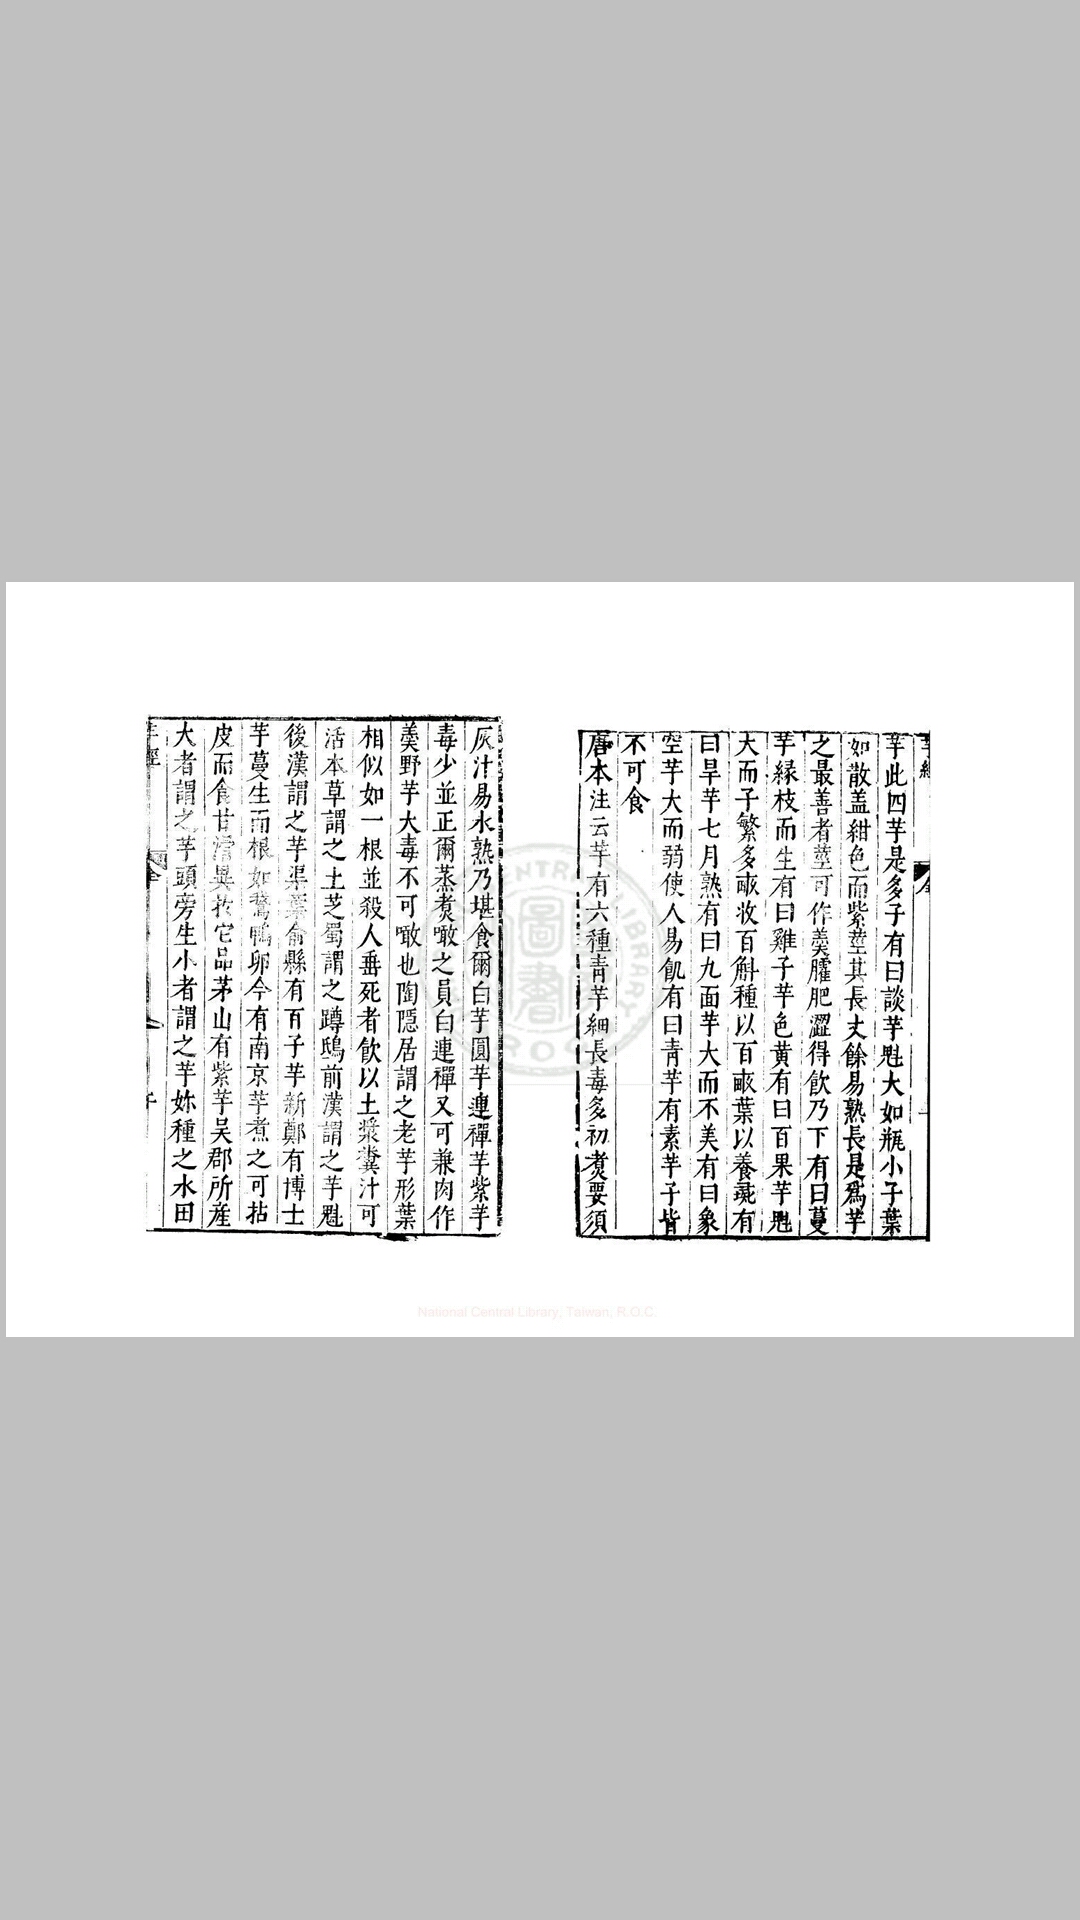 芋此四芋是多子有曰談芋魁大如瓶小子葉
如散盖紺色而紫莖其長丈餘易熟長是為芋
之最善者莖可作羹臛肥澀得飲乃下有曰蔓
芋緣枝而生有曰雞子芋色黃有曰百果芋魁
大而子繁多畝收百斛種以百畝葉以養彘有
曰旱芋七月熟有曰九面芋大而不美有曰象
空芋大而弱使人易飢有曰青芋有素芋子皆
不可食
唐本注云芋有六種青芋細長毒多初煮要須
灰汁易水熟乃堪食爾白芋圓芋連禪芋紫芋
毒少並正爾蒸煮噉之員白連禪又可兼肉作
羹野芋大毒不可噉也陶隱居謂之老芋形葉
相似如一根並殺人垂死者飲以土漿糞汁可
活本草謂之土芝蜀謂之蹲鴟前漢謂之芋魁
後漢謂之芋渠葉俞縣有百子芋新鄭有博士
芋蔓生而根如鵞鴨卵今有南京芋煮之可拈
皮而食甘滑異於它品茅山有紫芋吳郡所產
大者謂之芋頭旁生小者謂之芋妳種之水田
芋經
National Central Library, Taiwan, R.O.C.